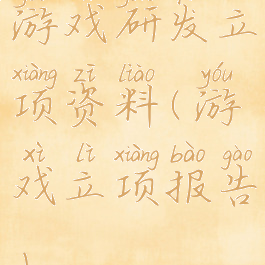 游戏研发立
xiàng zī liào yóu
项资料(游
xì lì xiàng bào gào
戏立项报告
)